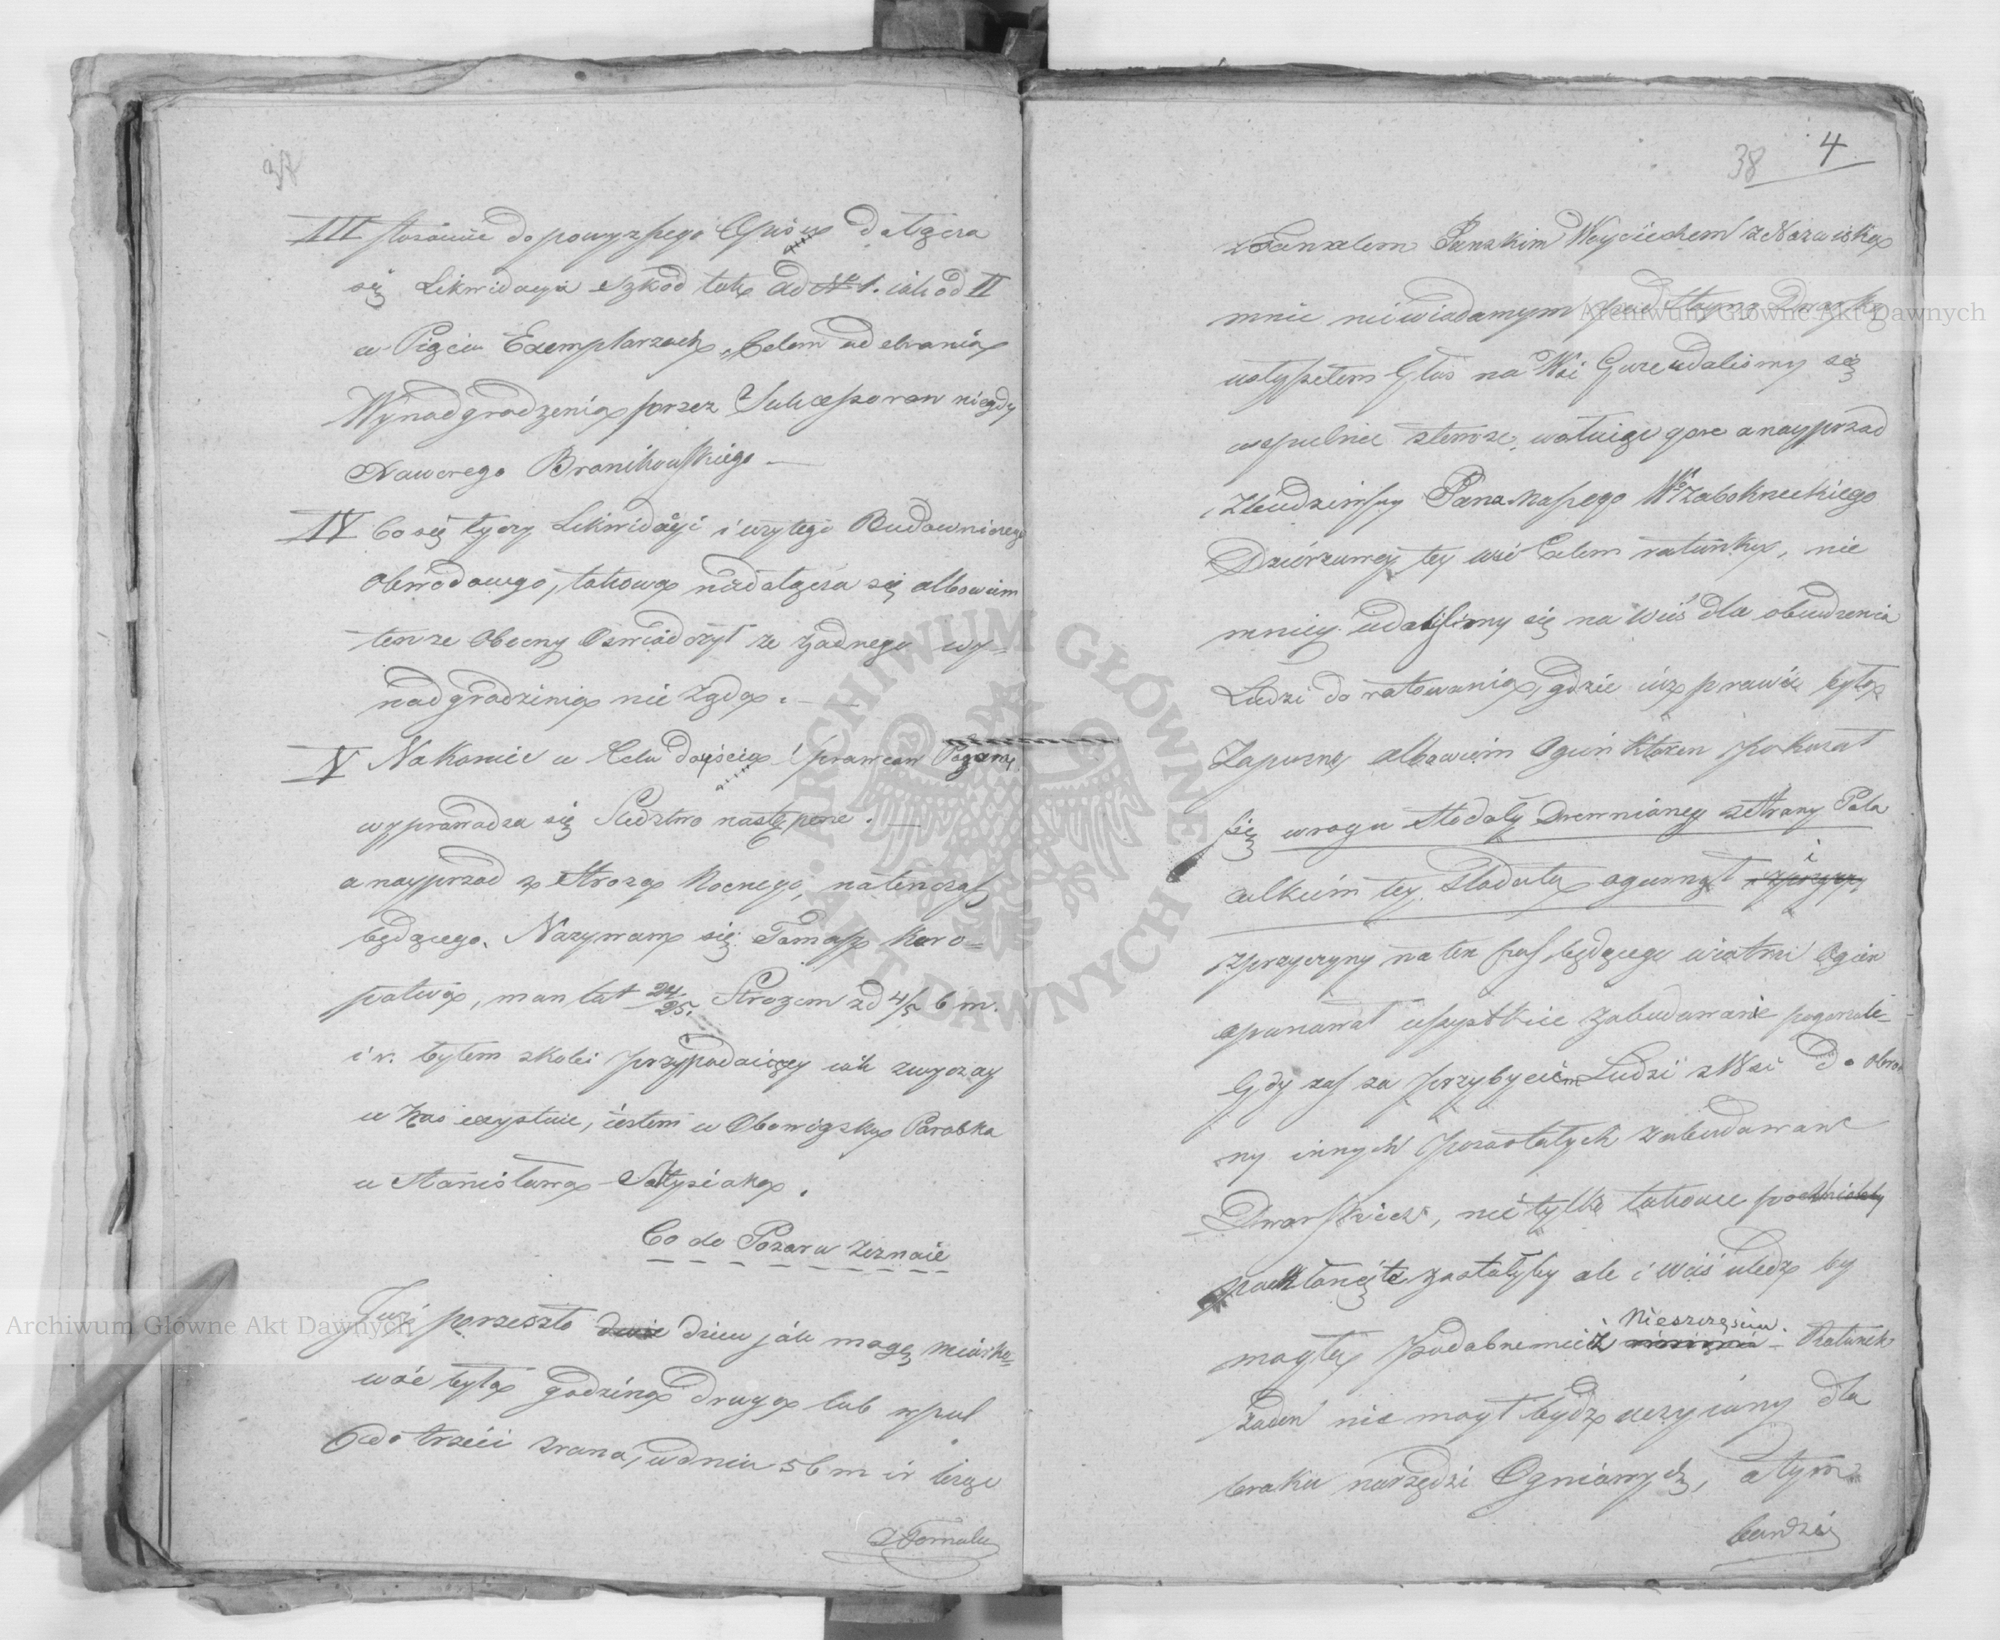 37
III stosownie do powyższego Opisu dołącza
się Likwidacya Szkód tak ad No 1. jak od II
w Pięciu Exemplarzach, Celem odebrania
Wynadgrodzenia przez Sukcessorow niegdy
Xawerego Bronikowskiego —
IV Co się tyczy Likwidacyi i użytego Budowniczego
Obwodowego, takowa niedołącza się albowiem
tenze Obecny Oswiadczył ze żadnego wy-
nadgrodzenia nie żąda. —
V Nakoniec w Celu dojścia Sprawców Pożaru
wyprowadza się Sledztwo następne. —
a nayprzod z Stroza Nocnego, natenczas
będącego. Nazywam się Tomasz Karo-
patwa, mam lat 24/25. Strozem zd 4/5 b m.
i r. byłem z kolei przypadaiący iak zwyczay
u nas exystuie, iestem w Obowiązku Parobka
u Stanisława Matysiaka.
Co do Pozaru zeznaie
Już przeszło dwie dziew jak mogę miarko-
wać była godzina druga lub wpuł
do trzeci zrana, w dniu 5 b m i r bęge
38 4
Pańskim Woyciechem z Nazwiska
mnie niewiadomym pod Stayno Dworską
usłyszełem Głos na Wsi Gore udalismy się
wspulnie stemze, wołaiąc gore a nayprzod
zbudzilismy Pana naszego Wo Zabokneckiego
Dzierzawcę tey wsi Celem ratunku, nie
mniey udalismy się na Wieś dla obudzenia
Ludzi do ratowania, gdzie iuz prawie było
Zapuzno albowiem Ogien który pokazał
się w rogu Stodoły Drewnianey z Strony Pola
całkiem tey Stodołę ogarnął i
z przyczyny na ten czas będącego wiatru Ogien
opanował wszystkie zabudowanie pogorzałe
Gdy zaś za przybyciem Ludzi z Wsi do obro
ny innych pozostałych zabudowan
Dworskich, nietylko takowe
zostałyby ale i Wieś uledz by
mogłey podobnemuż Nieszczęsciu. Ratunek
żaden nie mogł bydz uczyniony dla
braku narzędzi Ogniowych, a tym
bardziey